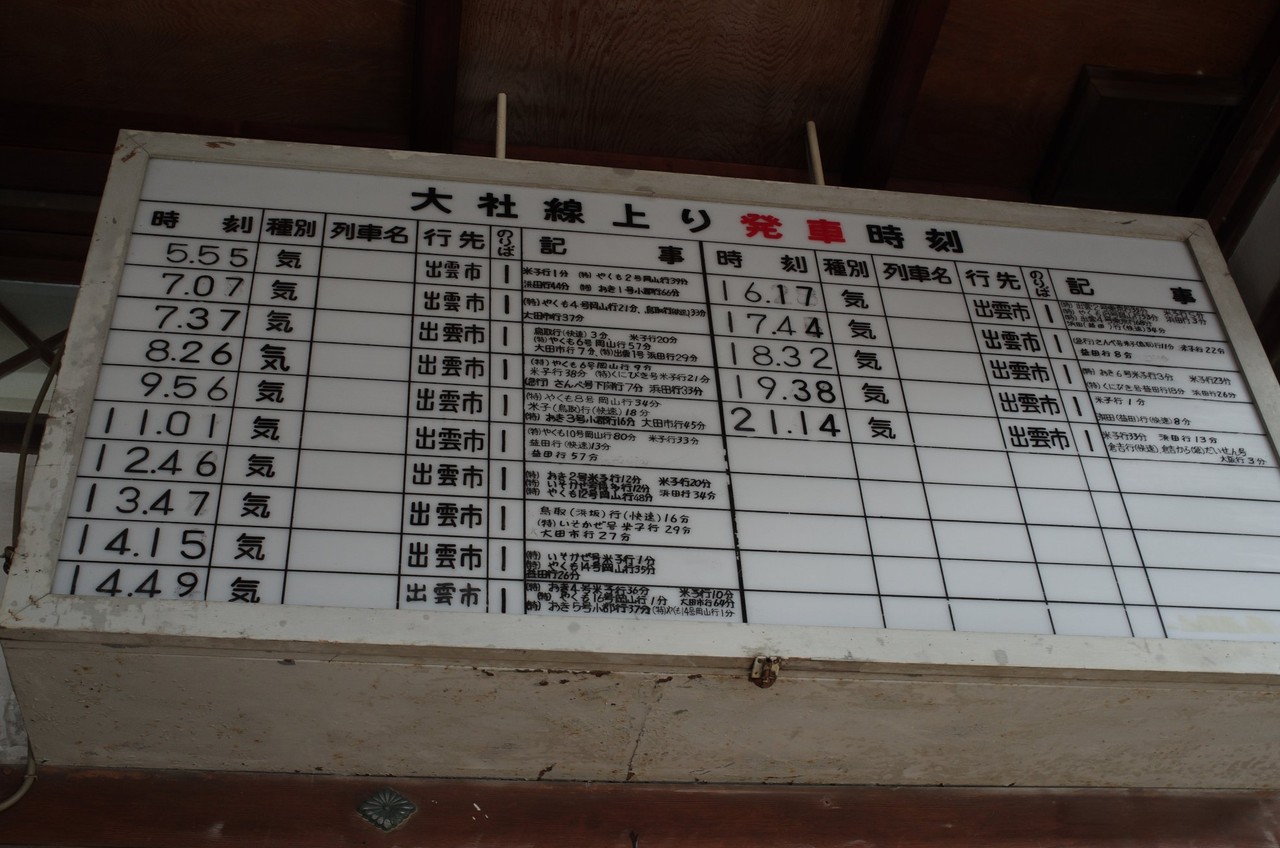 大社線上り発車時刻
時刻 種別 列車名 行先 のりば 記事
5.55 気 出雲市 1 米子行1分 (特)やくも2号岡山行39分
浜田行44分 (特)おき1号小郡行66分
7.07 気 出雲市 1 (特)やくも4号岡山行21分、鳥取行(快速)33分
大田市行37分
7.37 気 出雲市 1 鳥取行(快速)3分、米子行20分
(特)やくも6号岡山行57分
大田市行7分、(特)出雲1号浜田行29分
8.26 気 出雲市 1 (特)やくも6号岡山行9分
米子行38分 (特)くにびき号米子行21分
(急行)さんべ号下関行7分 浜田行33分
9.56 気 出雲市 1 (特)やくも8号岡山行34分
米子(鳥取)行(快速)18分
(特)おき3号小郡行16分 大田市行45分
11.01 気 出雲市 1 (特)やくも10号岡山行80分 米子行33分
益田行(快速)13分
益田行57分
12.46 気 出雲市 1 (特)おき2号米子行12分 米子行20分
(特)いそかぜ号博多行12分
(特)やくも12号岡山行48分 浜田行34分
13.47 気 出雲市 1 鳥取(浜坂)行(快速)16分
(特)いそかぜ号米子行29分
大田市行27分
14.15 気 出雲市 1 (特)いそかぜ号米子行1分
(特)やくも14号岡山行35分
益田行26分
14.49 気 出雲市 1 (特)おき4号米子行36分 米子行10分
(特)やくも16号岡山行1分 大田市行64分
(特)おき5号小郡行37分 (特)やくも14号岡山行1分
時刻 種別 列車名 行先 のりば 記事
16.17 気 出雲市 1
浜田(益田)行(快速)34分
17.44 気 出雲市 1 米子行22分
益田行8分
18.32 気 出雲市 1 (特)おき6号米子行3分 米子行23分
(特)くにびき号益田行18分 浜田行26分
19.38 気 出雲市 1 米子行1分
浜田(益田)行(快速)8分
21.14 気 出雲市 1 米子行33分 浜田行13分
倉吉行(快速)、倉吉から(急)だいせん号
大阪行3分